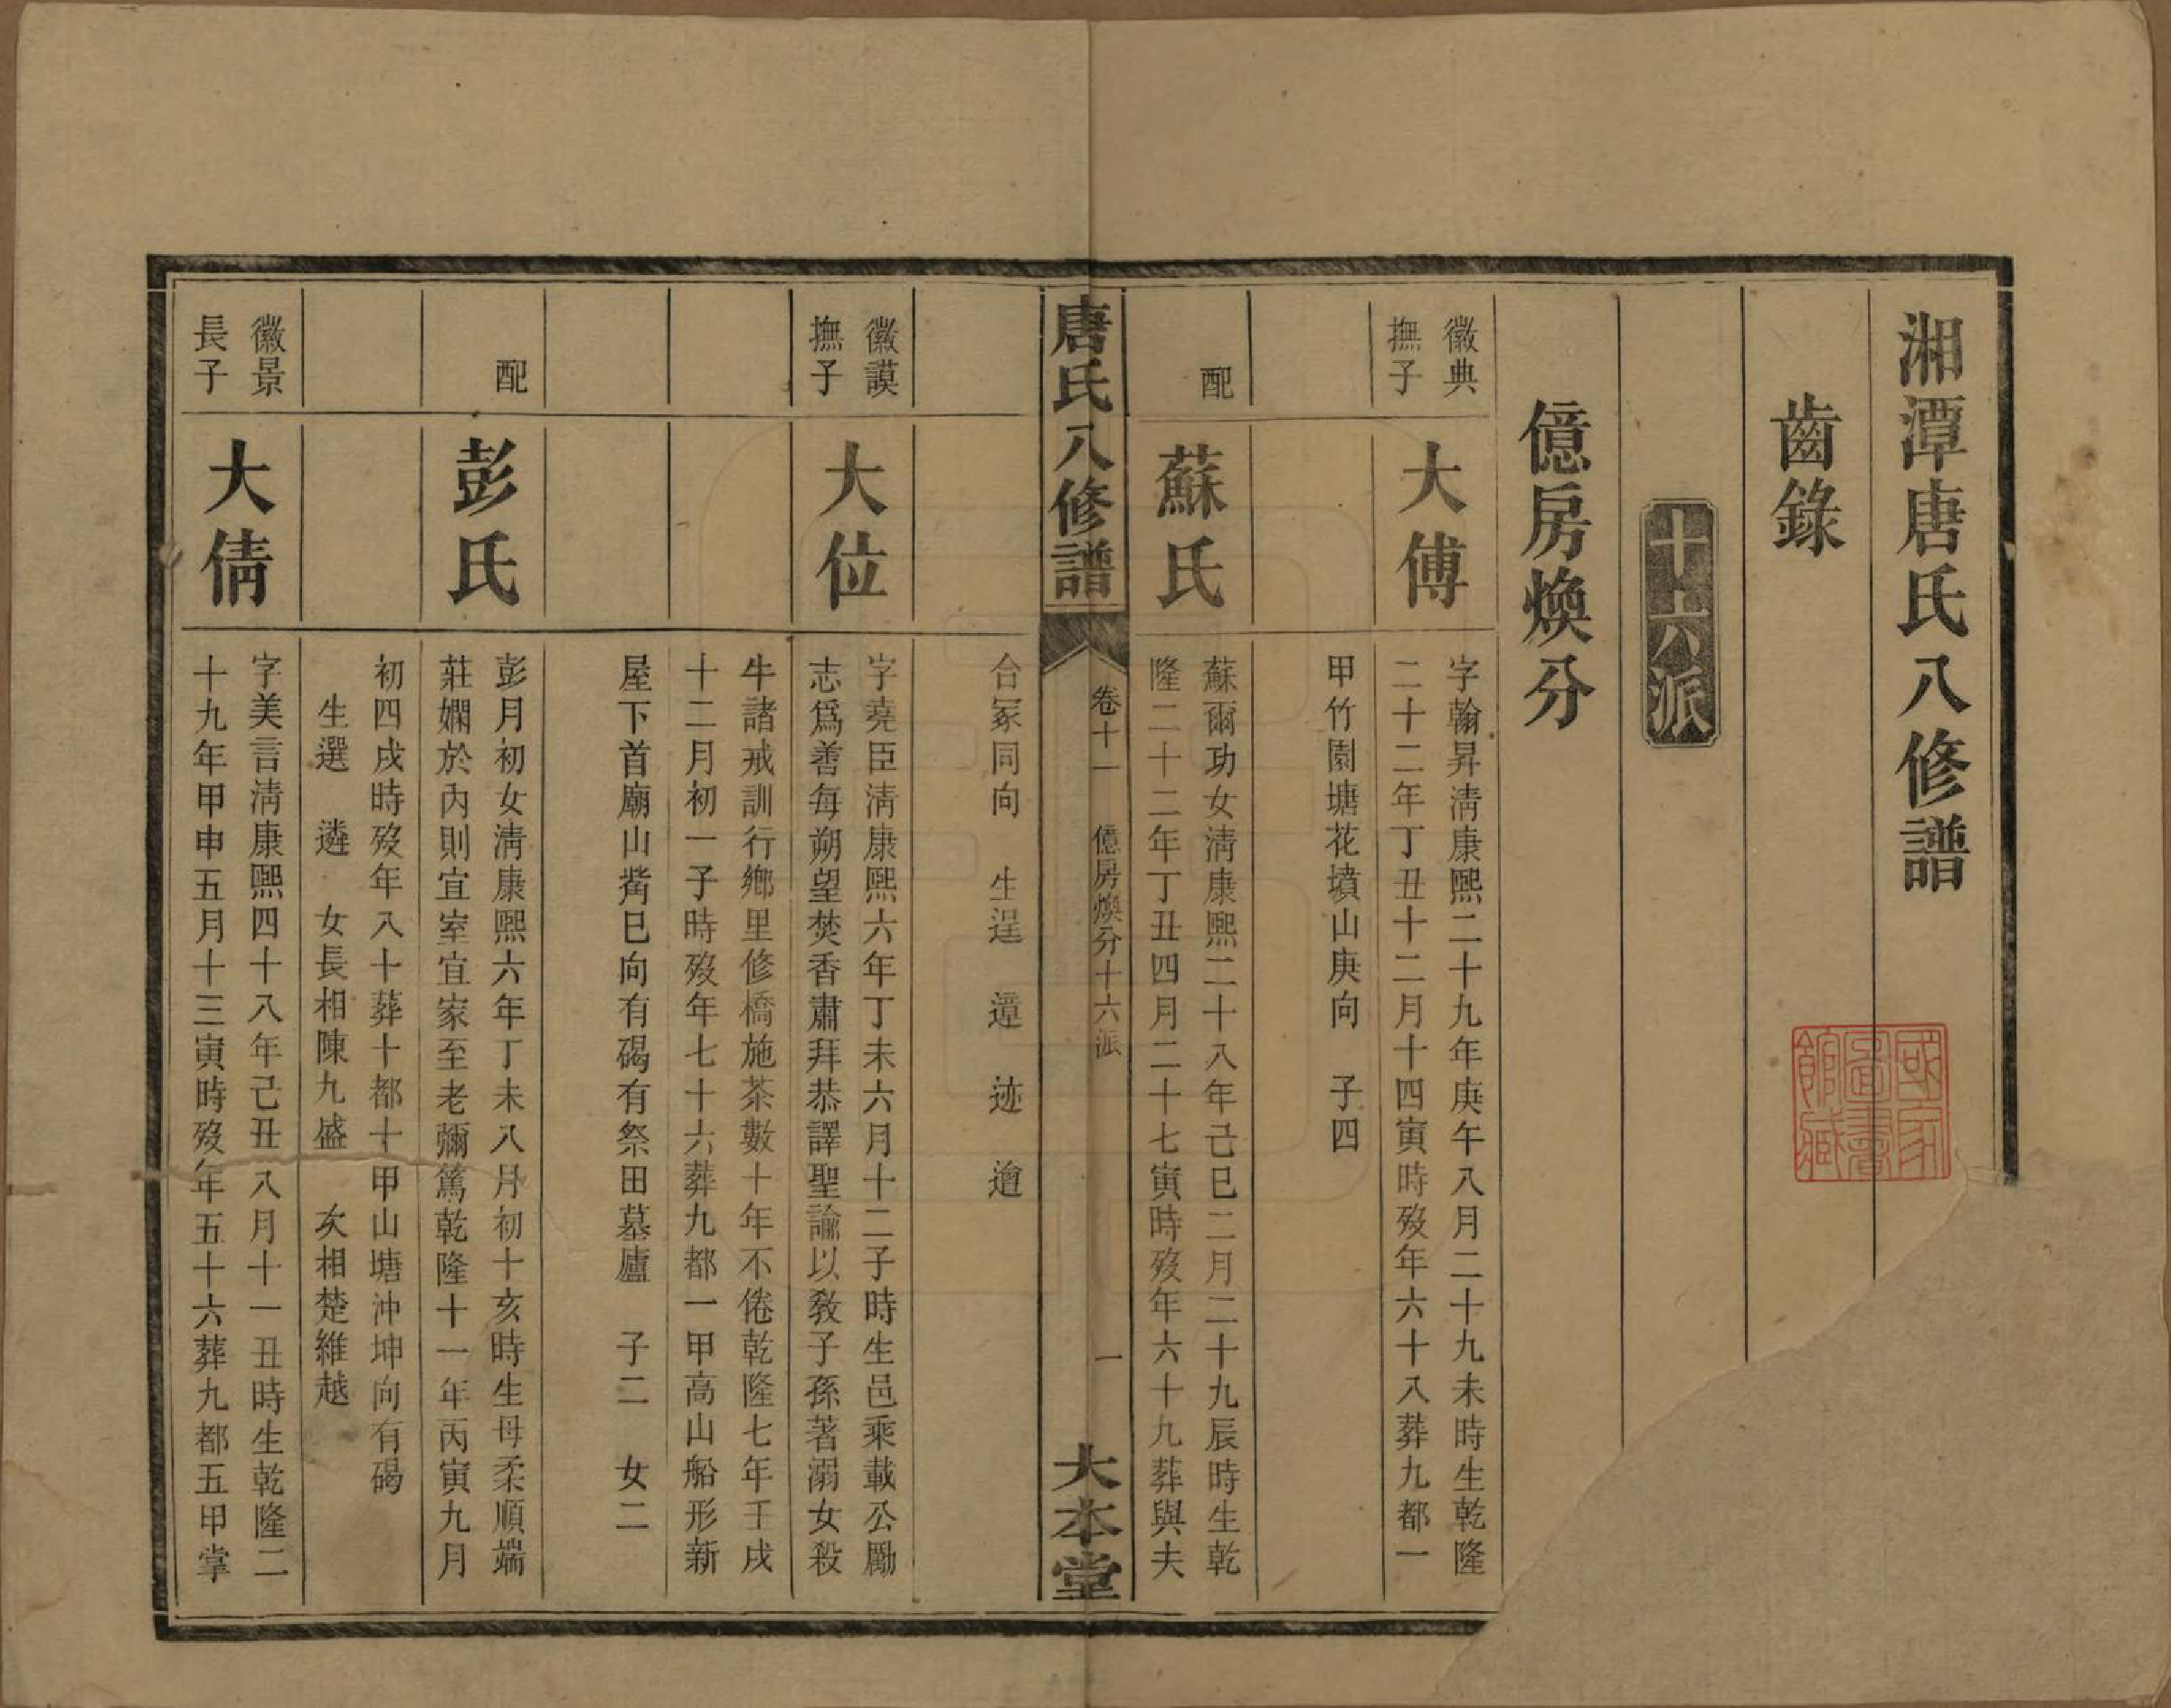 湘潭唐氏八修譜
齒錄
十六派
億房煥分
徽典
撫子
大傅
字翰昇淸康熙二十九年庚午八月二十九未時生乾隆
二十二年丁丑十二月十四寅時歿年六十八葬九都一
甲竹園塘花墳山庚向 子四
配
蘇氏
蘇爾功女淸康熙二十八年己巳二月二十九辰時生乾
隆二十二年丁丑四月二十七寅時歿年六十九葬與夫
唐氏八修譜
卷十一
億房煥分十六派
一
大本堂
合冢同向 生逞 遑 迹 遒
徽謨
撫子
大位
字堯臣淸康熙六年丁未六月十二子時生邑乘載公勵
志爲善每朔望焚香肅拜恭譯聖諭以敎子孫著溺女殺
牛諸戒訓行鄕里修橋施茶數十年不倦乾隆七年壬戌
十二月初一子時歿年七十六葬九都一甲高山船形新
屋下首廟山觜巳向有碣有祭田墓廬 子二 女二
配
彭氏
彭月初女淸康熙六年丁未八月初十亥時生母柔順端
莊嫻於內則宜室宜家至老彌篤乾隆十一年丙寅九月
初四戌時歿年八十葬十都十甲山塘沖坤向有碣
生選 遴 女長相陳九盛 次相楚維越
徽景
長子
大倩
字美言淸康熙四十八年己丑八月十一丑時生乾隆二
十九年甲申五月十三寅時歿年五十六葬九都五甲掌
國家
圖書
館藏